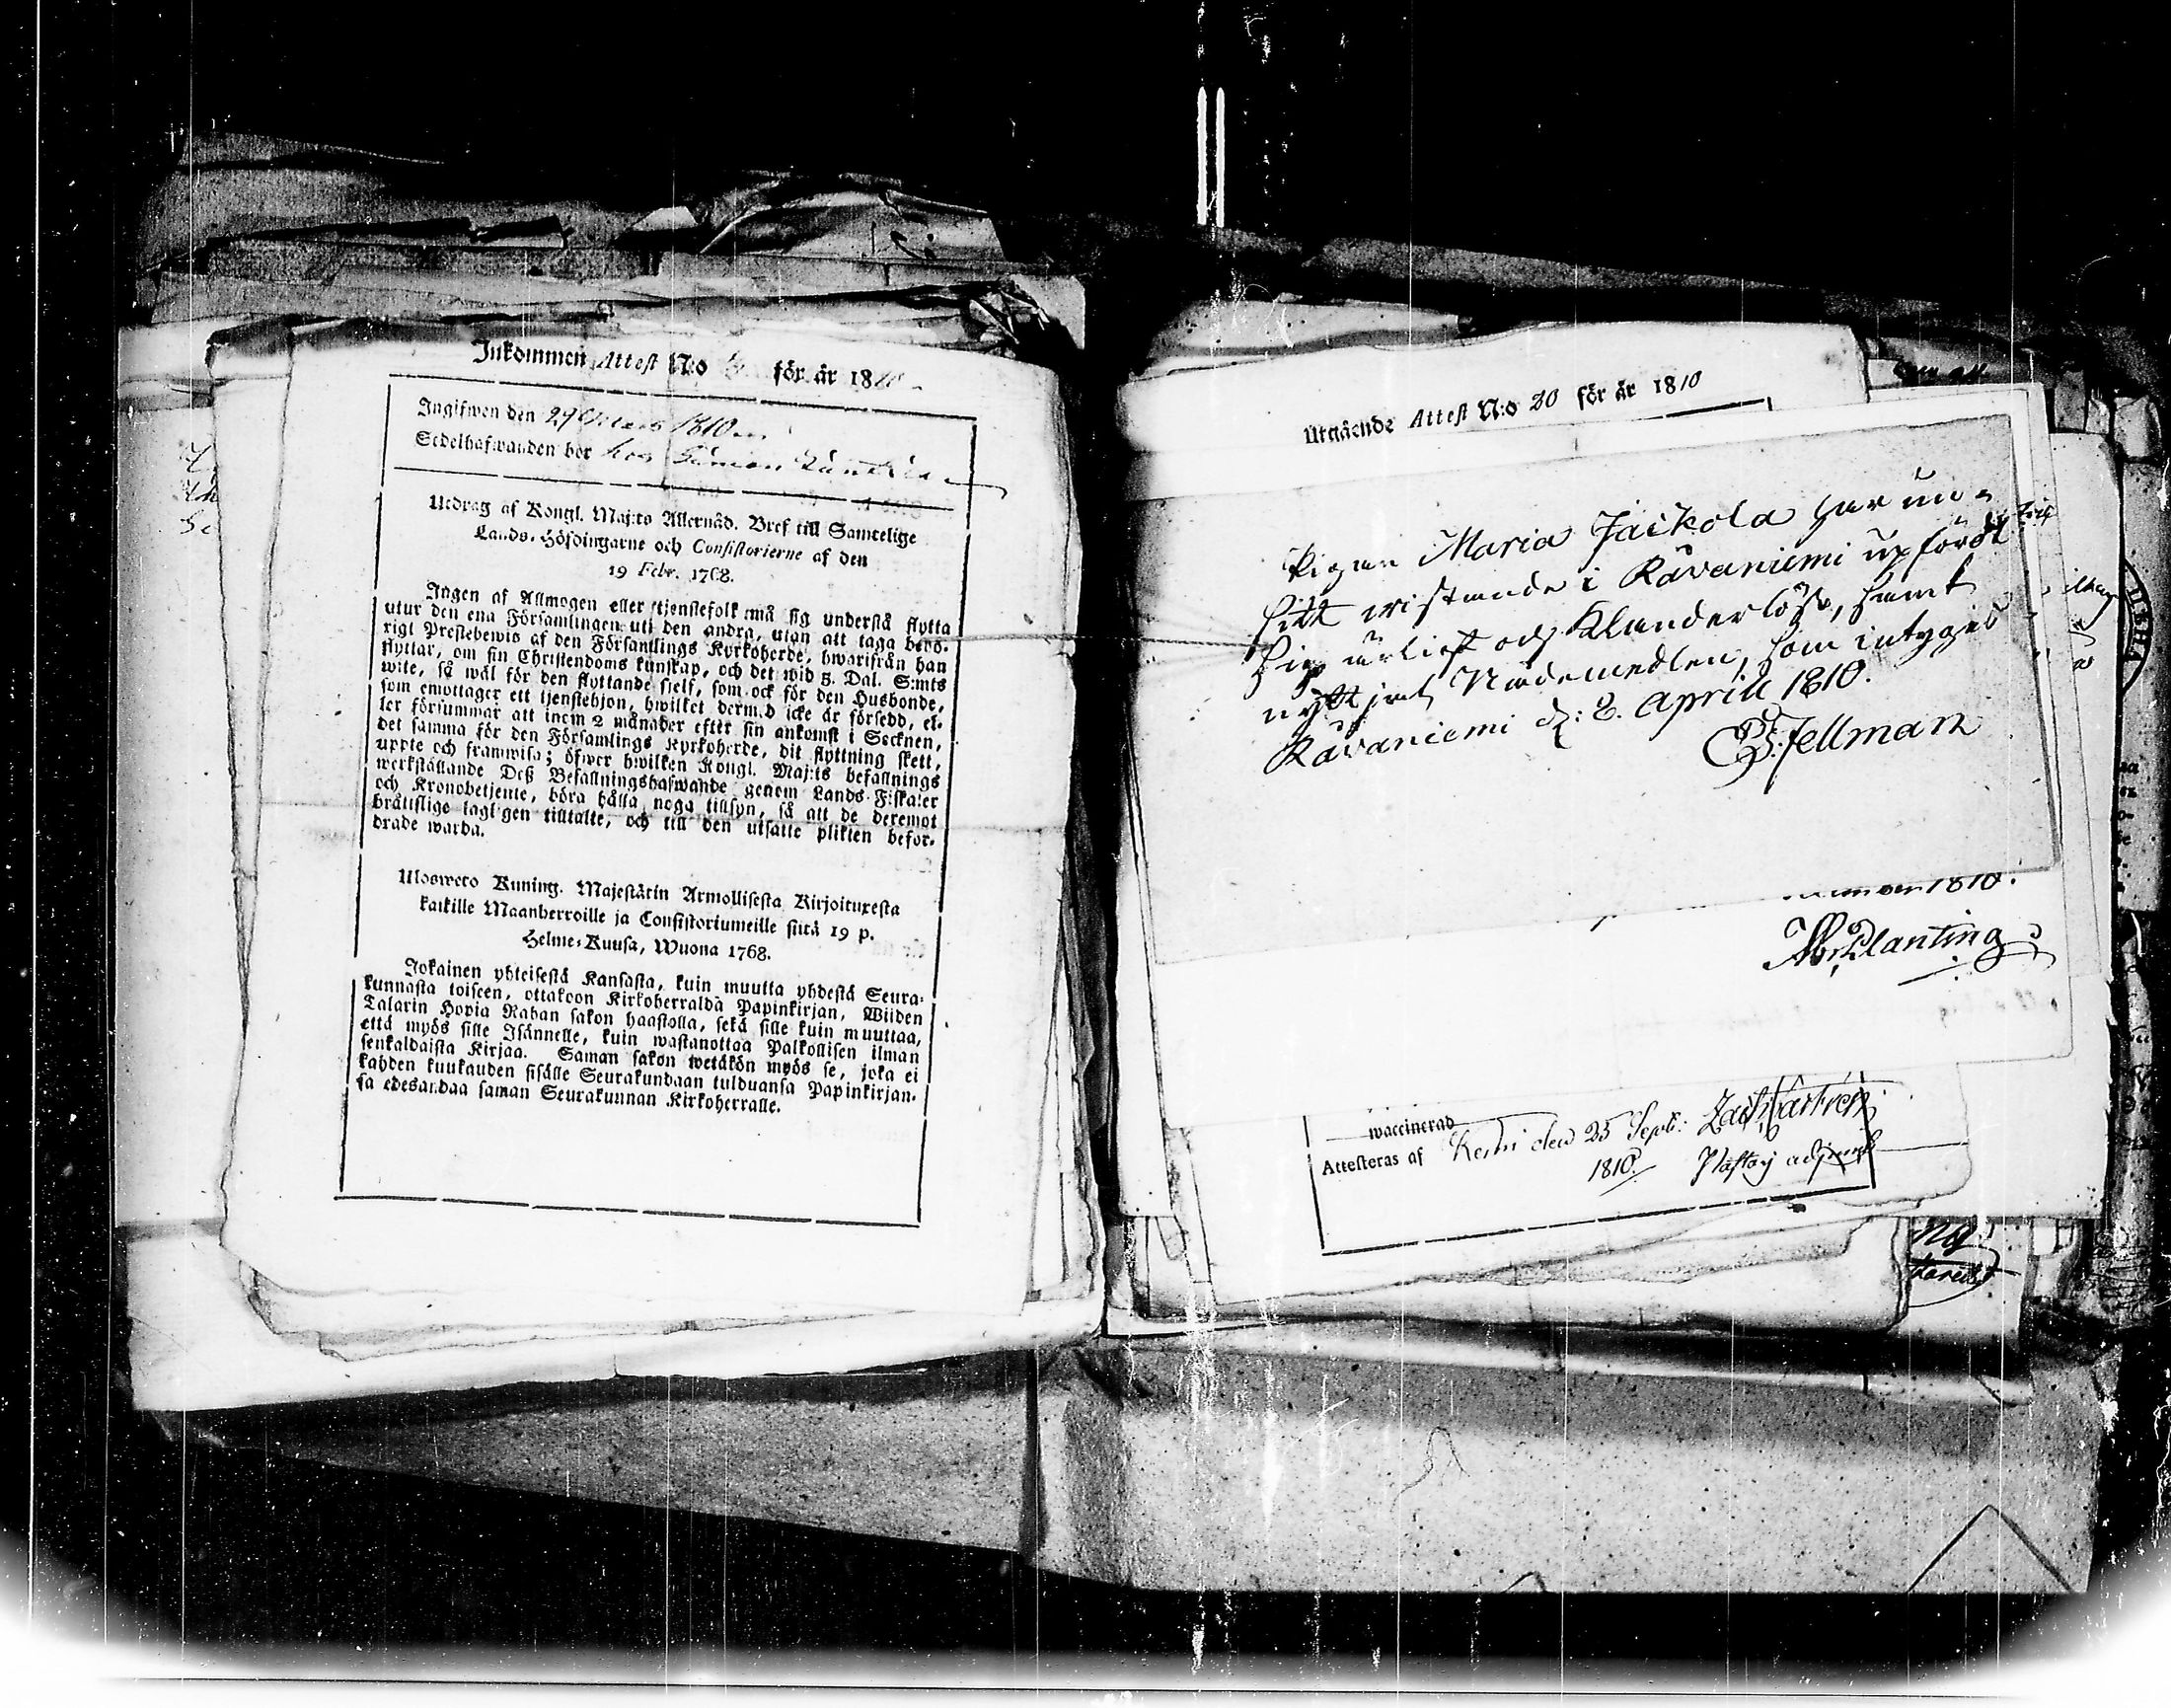 Inkommen Attest N:o för år 18
Ingifwen den 29 Mars 1810
Sedelhafwanden bor hos Simon
Utdrag af Kongl. Maj:ts Allernåd. Bref till Samtelige
Lands-Höfdingarne och Consistorierne af den
19 Febr. 1768.
Ingen af Allmogen eller tjenstefolk må sig understå flytta
utur den ena Församlingen uti den andra, utan att taga behö-
rigt Prestebewis af den Församlings Kyrkoherde, hwarifrån han
flyttar, om sin Christendoms kunskap, och det wid 5. Dal. S:mts
wite, så wäl för den flyttande sielf, som ock för den Husbonde,
som emottager ett tjenstehjon, hwilket dermed icke är försedd, el-
ler försummar att inom 2 månader efter sin ankomst i Socknen,
det samma för den Församlings Kyrkoherde, dit flyttning skett,
uppte och framwisa; öfwer hwilken Kongl. Maj:ts befallnings
werkställande Deß Befallningshafwande genom Lands-Fiskaler
och Kronobetjente, böra hålla noga tillsyn, så att de deremot
bråttslige lagligen tilltalte, och till den utsatte plikten befor-
drade warda.
Uloswero Kuning. Majestätin Armollisesta Kirjoituxesta
kaikille Maanherroille ja Consistoriumeille siitä 19 p.
Helme-Kuusa, Wuona 1768.
Jokainen yhteisestä Kansasta, kuin muutta yhdestä Seura-
kunnasta toiseen, ottakoon Kirkoherralda Papinkirjan, Wiiden
Talarin Hopia Rahan sakon haastolla, sekä sille kuin muuttaa,
että myös sille Isännelle, kuin wastanottaa Palkollisen ilman
senkaldaista Kirjaa. Saman sakon wetäkön myös se, joka ei
kahden kuukauden sisälle Seurakundaan tulduansa Papinkirjan-
sa edesandaa saman Seurakunnan Kirkoherralle.
Utgående Attest N:o 20 för år 1810
Pigan Maria Jaikola har un-
sitt wistande i Råvaniemi upfördt
sig ärligt och Klanderlöst, samt
nyttjat Nådemedlen, som intygas
Råvaniemi d: 8. Aprill 1810.
Fellman
1810.
Planting
waccinerad
Attesteras af Kemi den 25 Sept: Zach Castrén
1810. Pastors adjunct